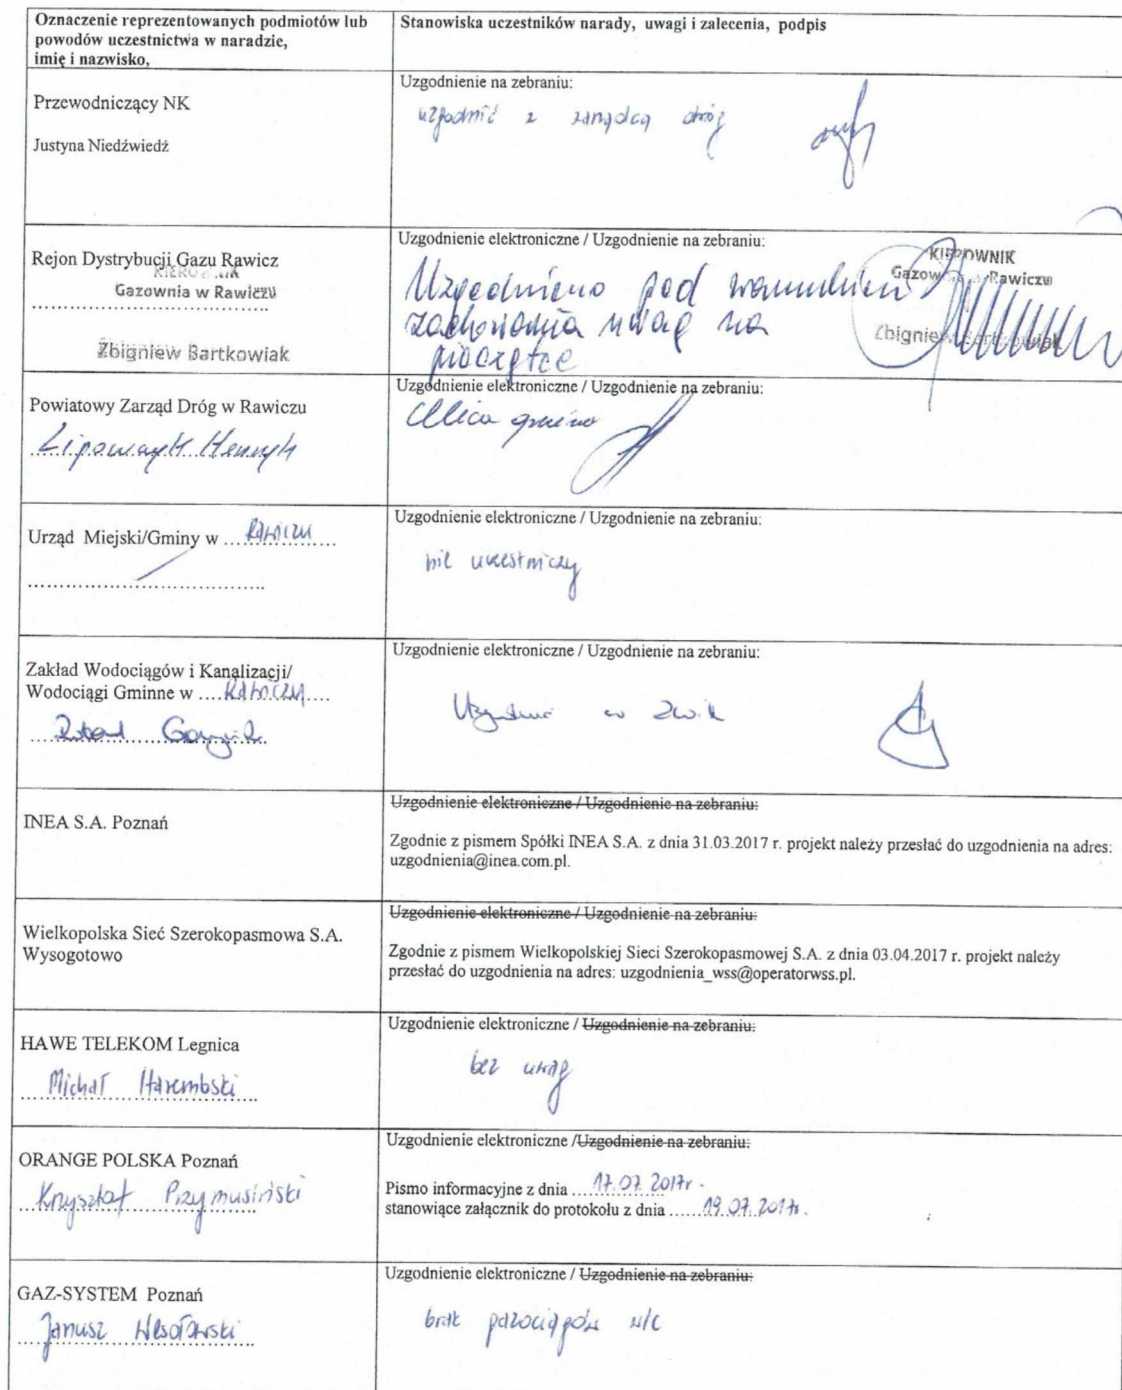 Oznaczenie reprezentowanych podmiotów lub
powodów uczestnictwa w naradzie,
imię i nazwisko,
Stanowiska uczestników narady, uwagi i zalecenia, podpis
Przewodniczący NK
Justyna Niedźwiedź
Uzgodnienie na zebraniu:
uzgodnić z zarządcą dróg
Rejon Dystrybucji Gazu Rawicz
KIEROWNIK
Gazownia w Rawiczu
Zbigniew Bartkowiak
Uzgodnienie elektroniczne / Uzgodnienie na zebraniu:
Uzgodniono pod warunkiem
zachowania uwag na
pieczątce
KIEROWNIK
Gazownia w Rawiczu
Zbigniew Bartkowiak
Powiatowy Zarząd Dróg w Rawiczu
Lipowczyk Henryk
Uzgodnienie elektroniczne / Uzgodnienie na zebraniu:
Ulica gminna
Urząd Miejski/Gminy w ....Rawiczu......
..................................
Uzgodnienie elektroniczne / Uzgodnienie na zebraniu:
nie uczestniczy
Zakład Wodociągów i Kanalizacji/
Wodociągi Gminne w ....Rawiczu....
Robert
Uzgodnienie elektroniczne / Uzgodnienie na zebraniu:
Uzgodnić w ZWiK
INEA S.A. Poznań
Uzgodnienie elektroniczne / Uzgodnienie na zebraniu:
Zgodnie z pismem Spółki INEA S.A. z dnia 31.03.2017 r. projekt należy przesłać do uzgodnienia na adres:
uzgodnienia@inea.com.pl.
Wielkopolska Sieć Szerokopasmowa S.A.
Wysogotowo
Uzgodnienie elektroniczne / Uzgodnienie na zebraniu:
Zgodnie z pismem Wielkopolskiej Sieci Szerokopasmowej S.A. z dnia 03.04.2017 r. projekt należy
przesłać do uzgodnienia na adres: uzgodnienia_wss@operatorwss.pl.
HAWE TELEKOM Legnica
Michał Harembski
Uzgodnienie elektroniczne / Uzgodnienie na zebraniu:
bez uwag
ORANGE POLSKA Poznań
Krzysztof Przymusiński
Uzgodnienie elektroniczne /Uzgodnienie na zebraniu:
Pismo informacyjne z dnia ....17.07.2017r.
stanowiące załącznik do protokołu z dnia ......19.07.2017r.
GAZ-SYSTEM Poznań
Janusz Wesołowski
Uzgodnienie elektroniczne / Uzgodnienie na zebraniu:
brak gazociągów w/c